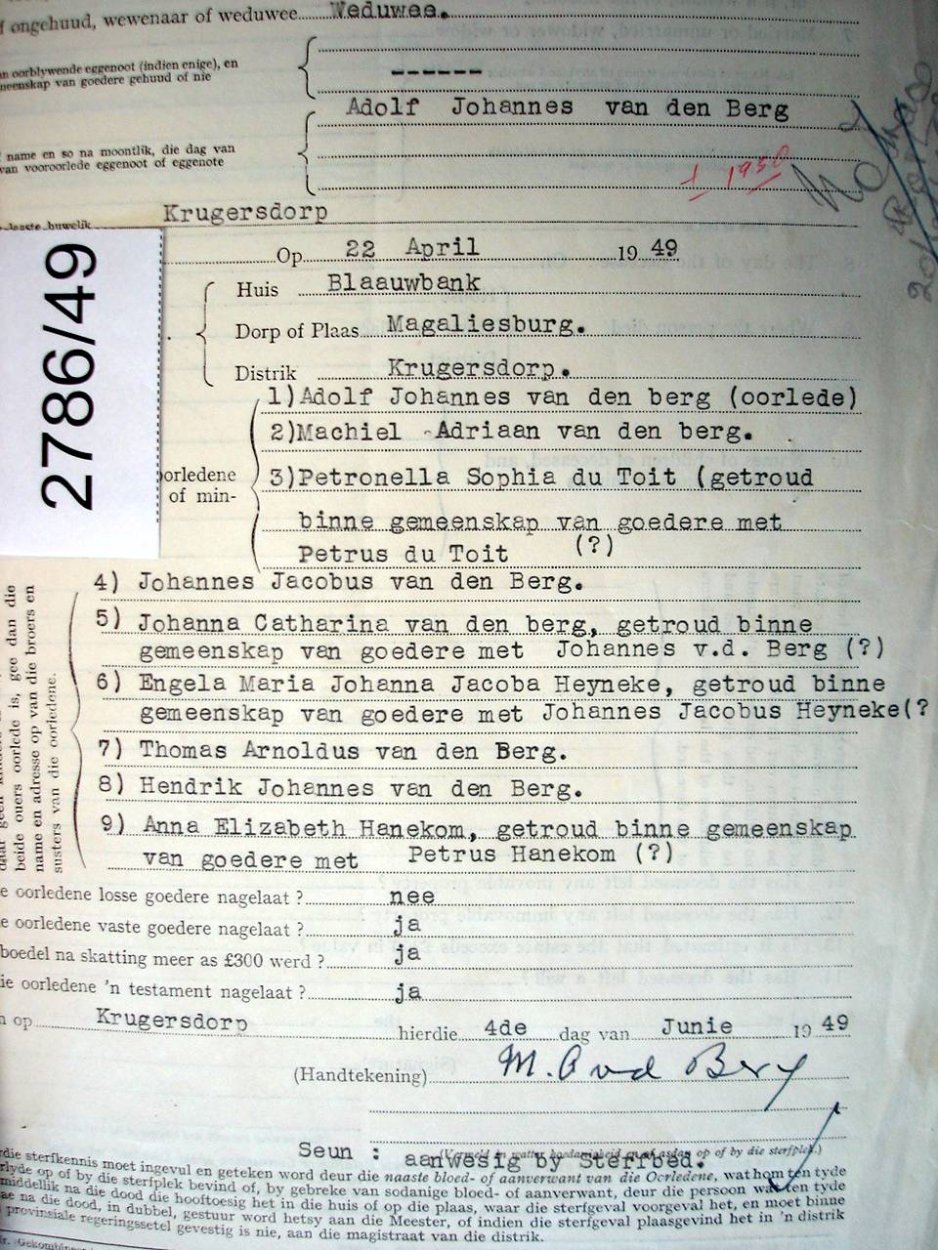 ongehuud, wewenaar of weduwee Weduwee.
oorblywende eggenoot (indien enige), en
gemeenskap van goedere gehuud of nie
------
Adolf Johannes van den Berg
name en so na moontlik, die dag van
van vooroorlede eggenoot of eggenote
1 1950
Krugersdorp
laaste huwelik
Op 22 April 1949
2786/49
Huis Blaauwbank
Dorp of Plaas Magaliesburg.
Distrik Krugersdorp.
1)Adolf Johannes van den berg (oorlede)
2)Machiel Adriaan van den berg.
orledene 3)Petronella Sophia du Toit (getroud
of min-
binne gemeenskap van goedere met
Petrus du Toit (?)
4) Johannes Jacobus van den Berg.
5) Johanna Catharina van den berg, getroud binne
gemeenskap van goedere met Johannes v.d. Berg (?)
6) Engela Maria Johanna Jacoba Heyneke, getroud binne
gemeenskap van goedere met Johannes Jacobus Heyneke(?
7) Thomas Arnoldus van den Berg.
8) Hendrik Johannes van den Berg.
9) Anna Elizabeth Hanekom, getroud binne gemeenskap
van goedere met Petrus Hanekom (?)
beide ouers oorlede is, gee dan die
name en adresse op van die broers en
susters van die oorledene.
e oorledene losse goedere nagelaat ? nee
e oorledene vaste goedere nagelaat ? ja
boedel na skatting meer as £300 werd ? ja
ie oorledene 'n testament nagelaat ? ja
op Krugersdorp hierdie 4de dag van Junie 1949
(Handtekening) M. A vd Berg
Seun : aanwesig by Sterfbed.
(Vermeld in watter hoedanigheid en of asdan op of by die sterfplek.)
die sterfkennis moet ingevul en geteken word deur die naaste bloed- of aanverwant van die Oorledene, wat ten tyde
op of by die sterfplek bevind of, by gebreke van sodanige bloed- of aanverwant, deur die persoon wat ten tyde
middellik na die dood die hooftoesig het in die huis of op die plaas, waar die sterfgeval voorgeval het, en moet binne
na die dood, in dubbel, gestuur word hetsy aan die Meester, of indien die sterfgeval plaasgevind het in 'n distrik
provinsiale regeringssetel gevestig is nie, aan die magistraat van die distrik.